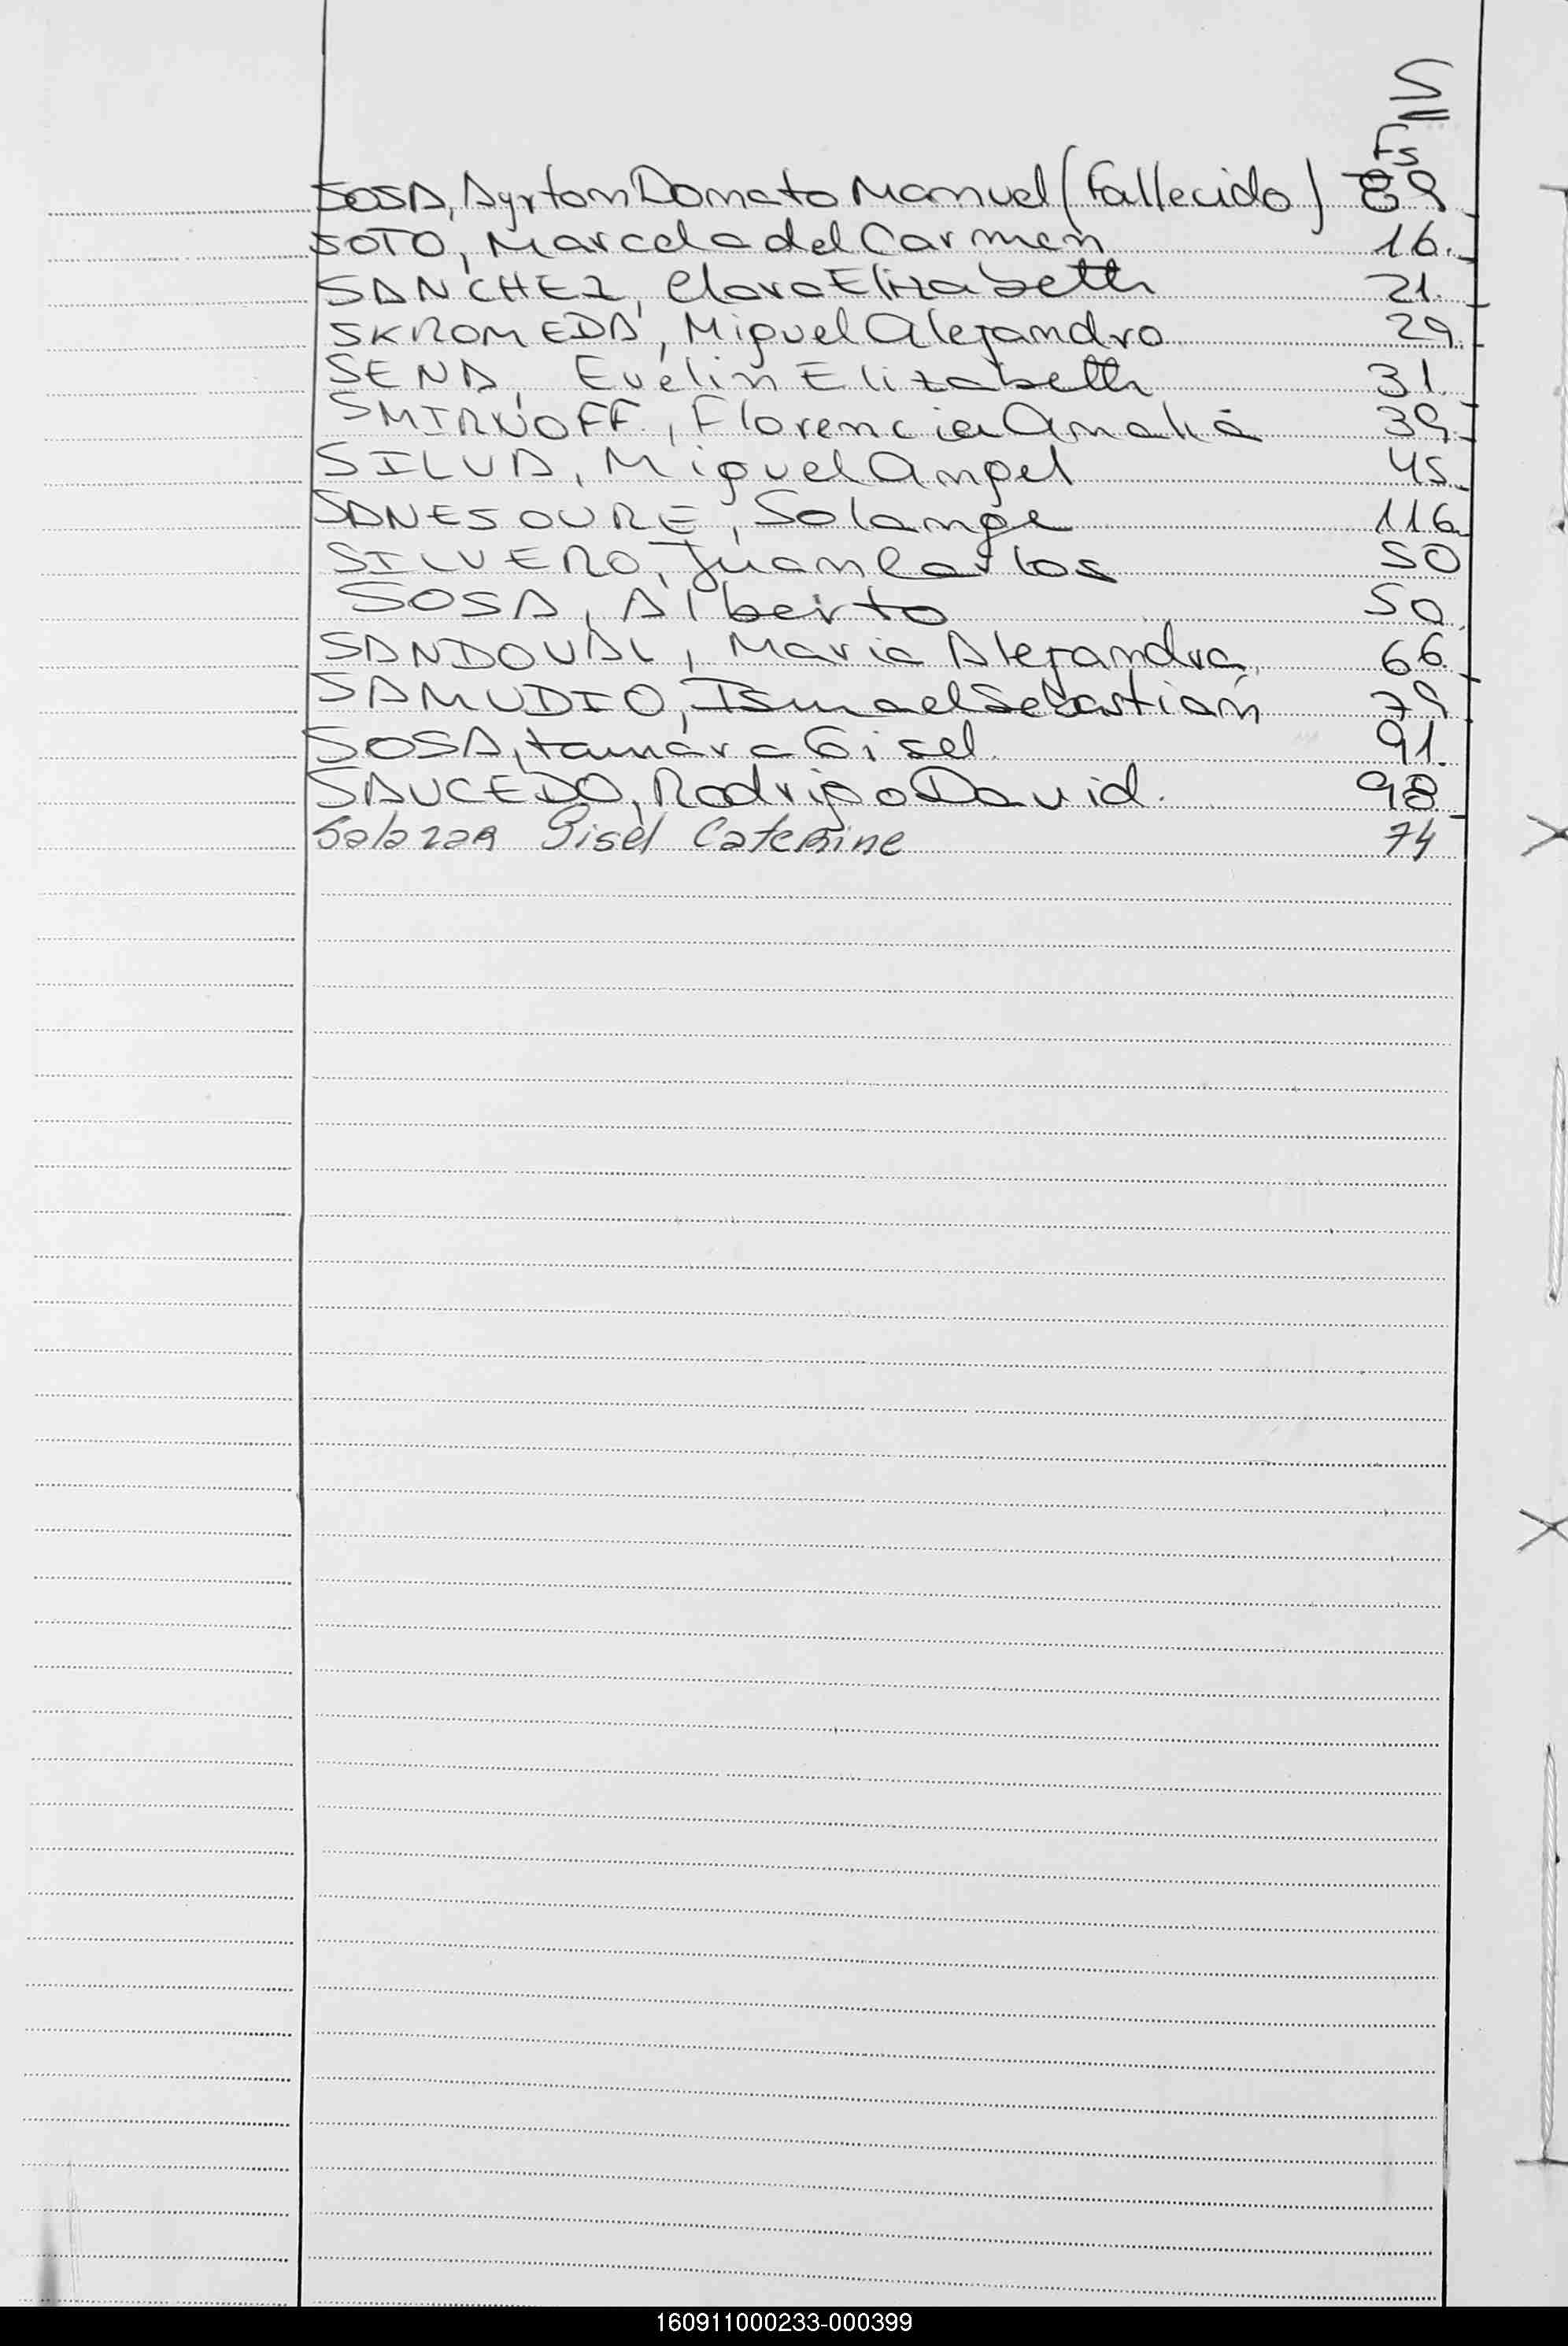 S
Fs
SOSA, Ayrton Donato Manuel (Fallecido) 89
SOTO, Marcela del Carmen 16.
SANCHEZ, Clara Elizabeth 21.
SKROMEDA, Miguel Alejandro 29.
SENA, Evelin Elizabeth 31.
SMIRNOFF, Florencia Amalia 39.
SILVA, Miguel Angel 45.
SANESOURE, Solange 116
SILVERO, Juan Carlos 50
SOSA, Alberto 50
SANDOVAL, Maria Alejandra 66.
SAMUDIO, Ismael Sebastián 79
SOSA, tamara Gisel. 91.
SAUCEDO, Rodrigo David. 98
Salazar Gisel Caterine 74
160911000233-000399